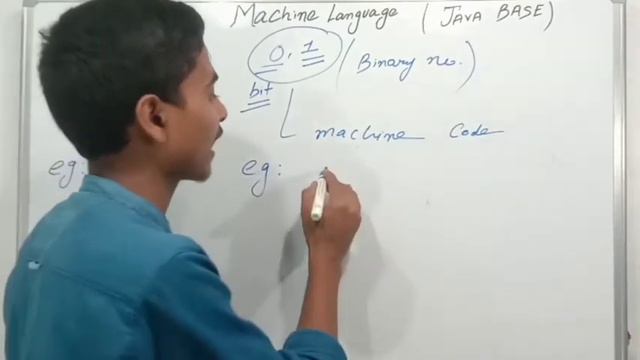 Machine Language ( JAVA BASE)
0, 1 (Binary no.)
bit
machine Code
eg: eg: